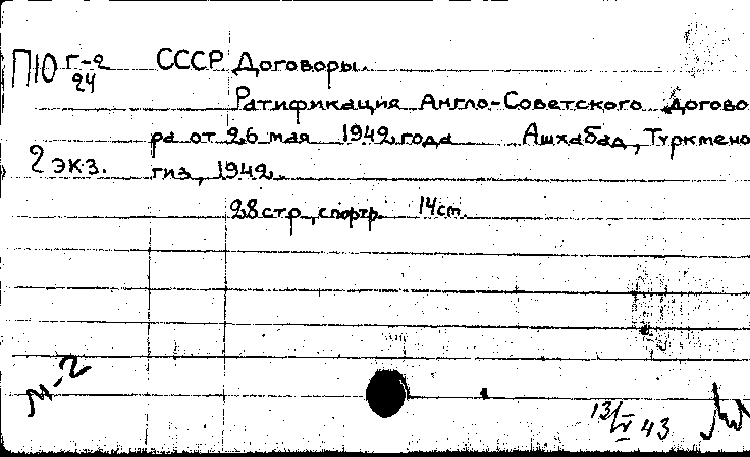 П10 Г-2 СССР Договоры.
24
Ратификация Англо-Советского догово
ра от 26 мая 1942 года Ашхабад, Туркмено
2 экз. гиз, 1942.
28 стр., с портр. 14 см.
М-2
13/V 43